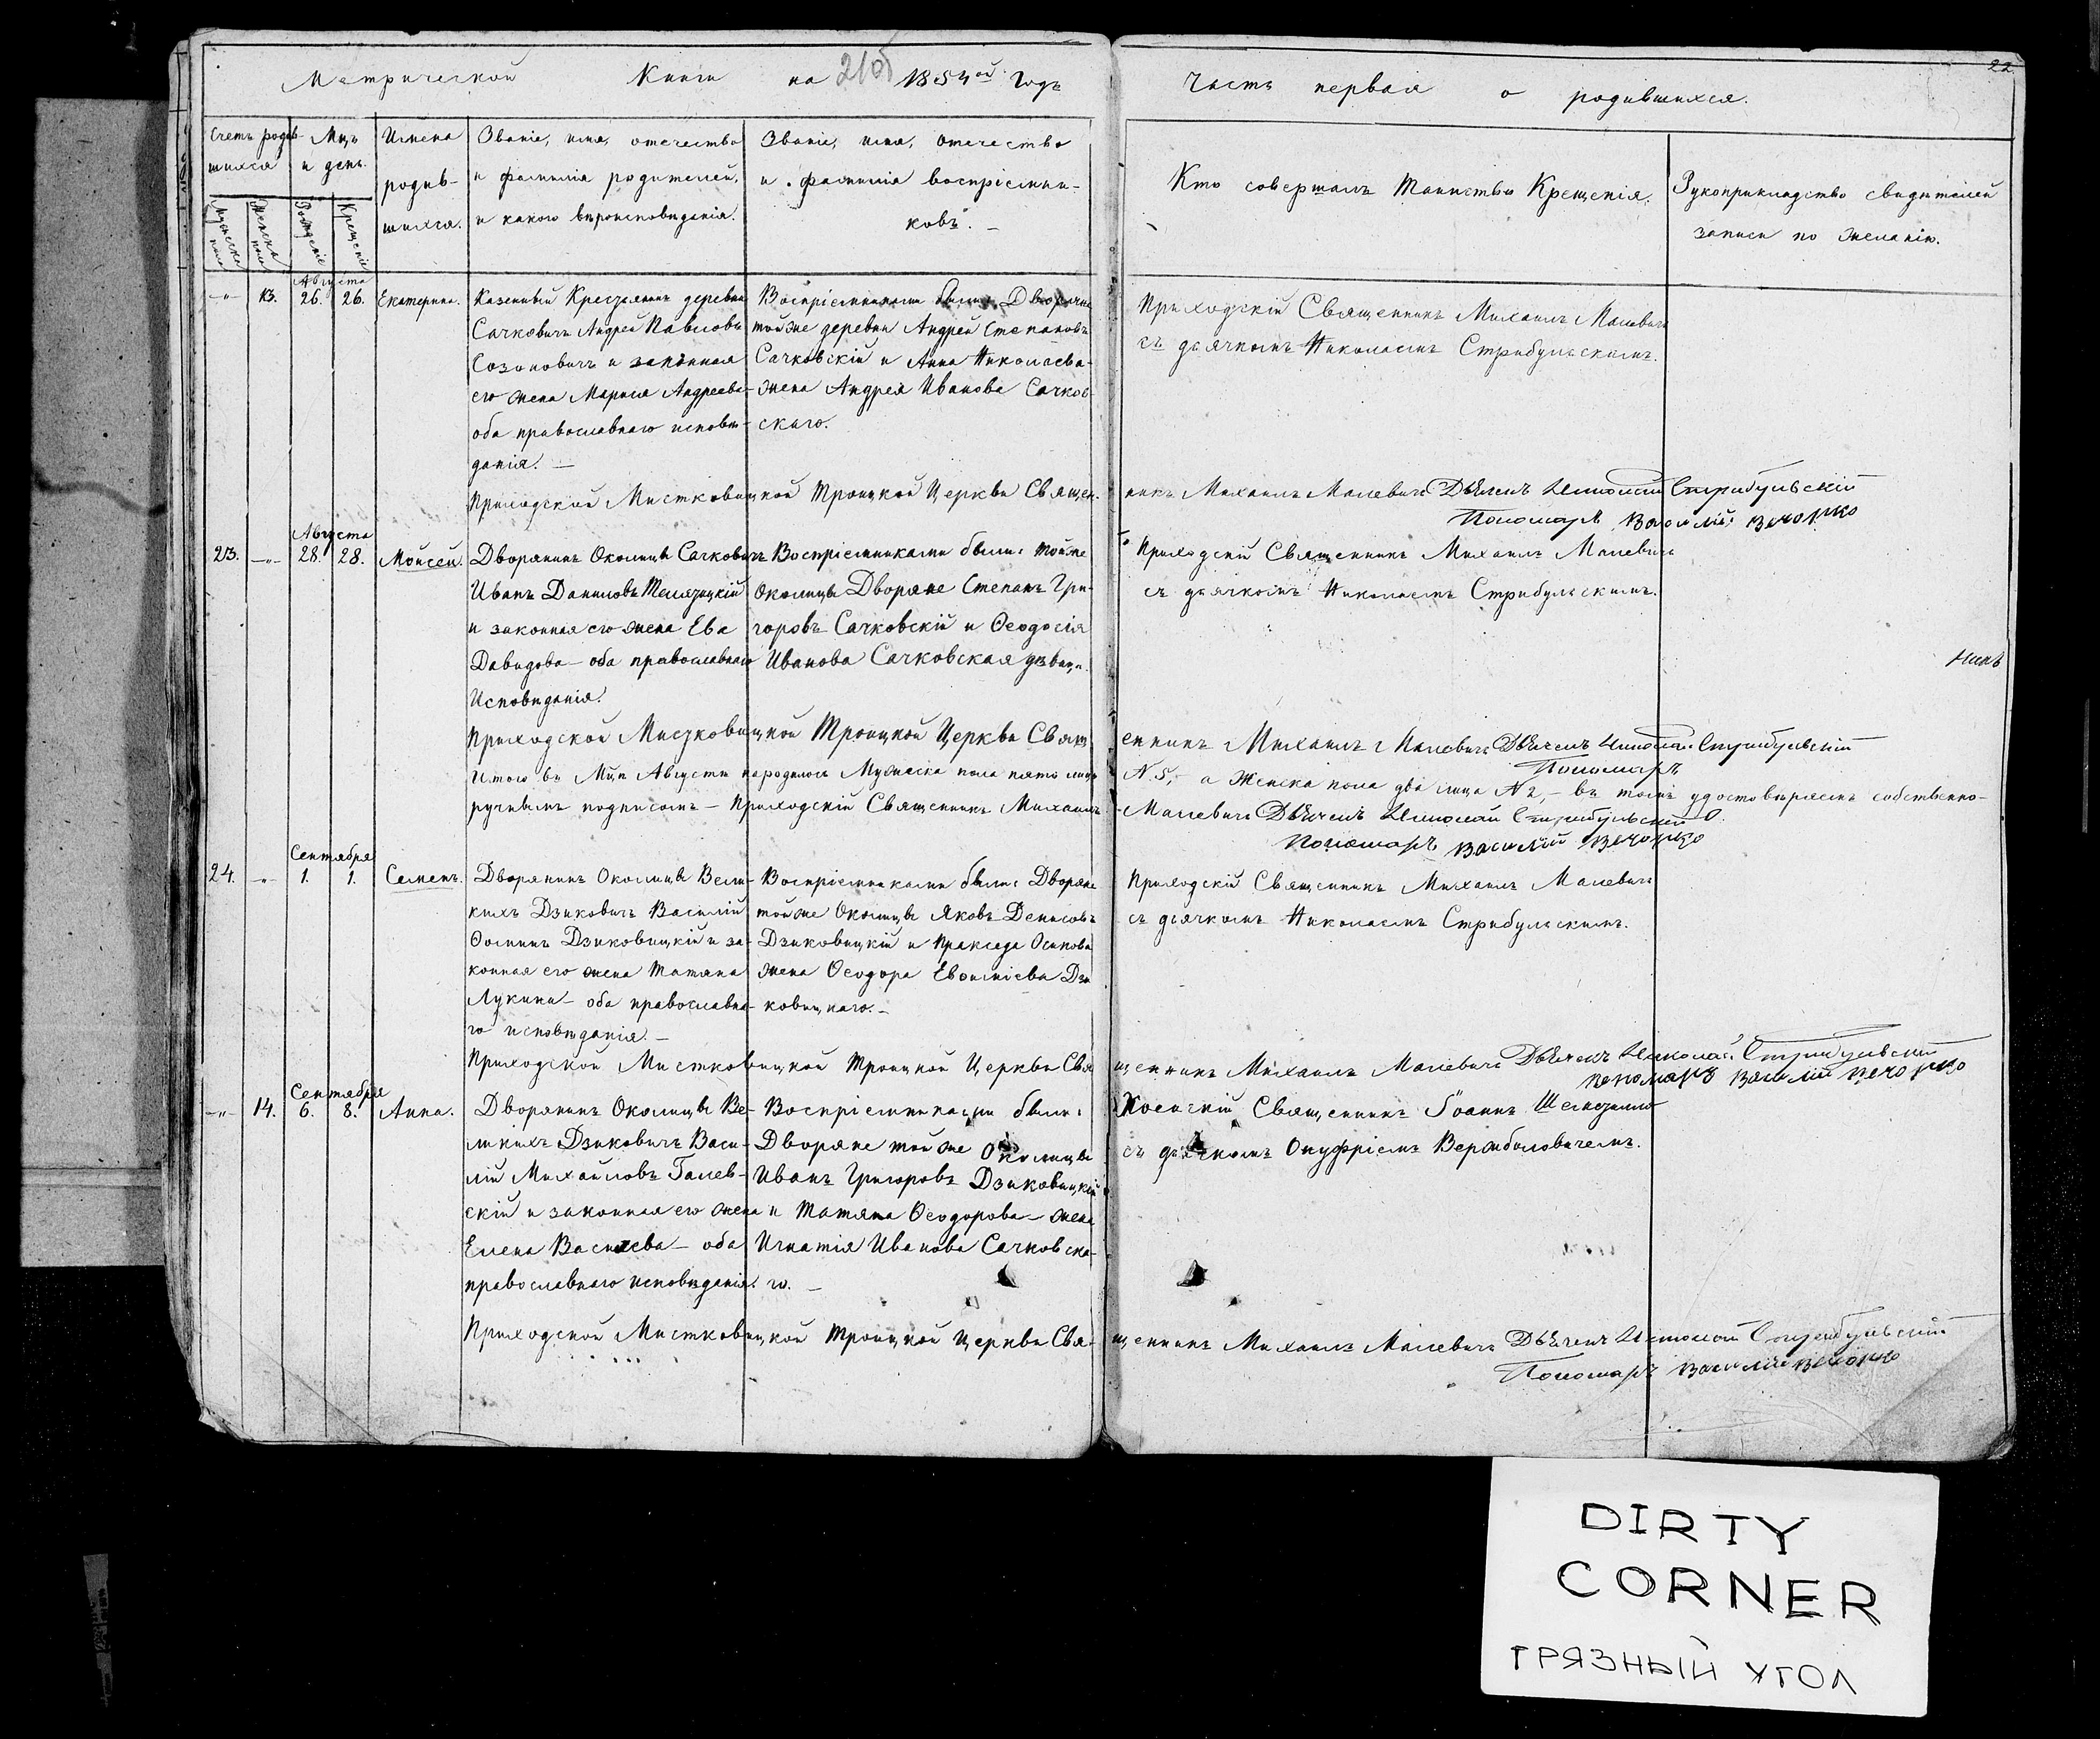 Метрической Книги на 21об 1854ой Годъ
Часть первая о родившихся.
22
Счетъ родив-
шихся
Мцъ
и день.
Имена
родив-
шихся.
Званіе, имя, отечество
и фамилія родителей,
и какого вѣроисповѣданія.
Званіе, имя, отечество
и фамилія воспріемни-
ковъ. –
Кто совершалъ Таинство Крещенія.
Рукоприкладство свидѣтелей
записи по желанію.
Мужеска пола
Женска пола
Рожденіе
Крещеніе
Августа
-„- 13. 26. 26. Екатерина.
Казенный Крестьянинъ деревни
Сачковичъ Андрей Павловъ
Созоновичъ и законная
его жена Марья Андреева-
оба православнаго исповѣ-
данія. –
Воспріемниками были: Дворяне
той же деревни Андрей Степановъ
Сачковскій и Анна Николаева-
жена Андрея Иванова Сачков-
скаго.
Приходскій Священникъ Михаилъ Малевичъ
съ дьячкомъ Николаемъ Стрибульскимъ.
Приходской Мистковицкой Троицкой Церкви Священ-
никъ Михаилъ Малевичъ Дьячекъ Николай Стрибульскій
Пономарь Василій Вечорко
Августа
23. -„- 28. 28. Мойсей.
Дворянинъ Околицы Сачковичъ
Иванъ Даниловъ Телязицкій
и законная его жена Ева
Давидова – оба православнаго
Исповѣданія.
Воспріемниками были: той же
Околицы Дворяне Степанъ Гри-
горовъ Сачковскій и Ѳеодосія
Иванова Сачковская дѣвица.
Приходскій Священникъ Михаилъ Малевичъ
съ дьячкомъ Николаемъ Стрибульскимъ.
никъ
Приходской Мистковицкой Троицкой Церкви Свящ-
енникъ Михаилъ Малевичъ Дьячекъ Николай Стрибульскій
Пономарь
Итого въ Мцѣ Августѣ народилось Мужеска пола пять лицъ
N. 5, – а Женска пола два лица N 2, – въ томъ удостовѣряемъ собственно-
ручнымъ подписомъ – Приходскій Священникъ Михаилъ
Малевичъ Дьячекъ Николай Стрибульскій
Пономарь Василій Вечорко
Сентября
24. -„- 1. 1. Семенъ.
Дворянинъ Околицы Вели-
кихъ Дзиковичъ Василій
Ѳоминъ Дзиковицкій и за-
конная его жена Татяна
Лукина – оба православна-
го исповѣданія. –
Воспріемниками были: Дворяне
той же Околицы Яковъ Денисовъ
Дзиковицкій и Праксeда Осипова
жена Ѳеодора Евѳиміева Дзи
ковицкаго. –
Приходскій Священникъ Михаилъ Малевичъ
съ дьячкомъ Николаемъ Стрибульскимъ.
Приходской Мистковицкой Троицкой Церкви Свя
щенникъ Михаилъ Малевичъ Дьячекъ Николай Стрибульскій
пономарь Василій Вечорко
Сентября
-„- 14. 6. 8. Анна.
Дворянинъ Околицы Ве-
ликихъ Дзиковичъ Васи-
лій Михайловъ Галев-
скій и законная его жена
Елена Василева – оба
православнаго исповѣданія.
Воспріемниками были:
Дворяне той же Околицы
Иванъ Григоровъ Дзиковицкій
и Татяна Ѳеодорова – жена
Игнатія Иванова Сачковска-
го. –
Священникъ Іоаннъ
съ дьячкомъ Онуфріемъ Вержбиловичемъ.
Приходской Мистковицкой Троицкой Церкви Свя-
щенникъ Михаилъ Малевичъ Дьячекъ Николай Стрибульскій
Пономарь Василій Вечорко
DIRTY
CORNER
ГРЯЗНЫЙ УГОЛ